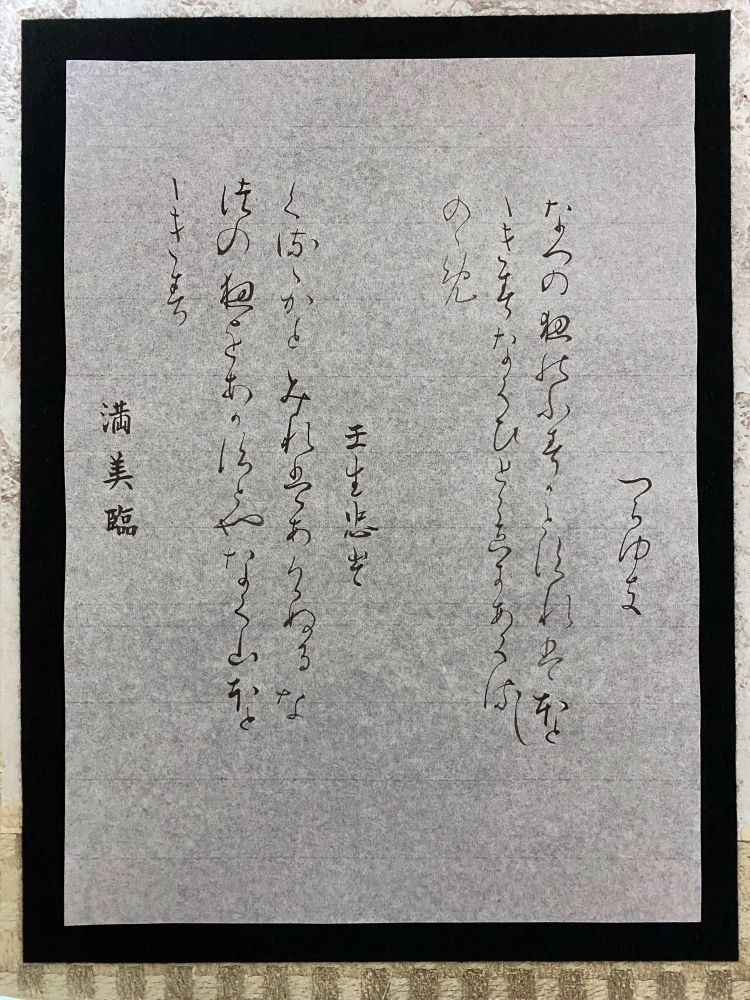 つらゆき
なつの夜のふすかとすれはほと
ゝきすなくひとこゑにあくるし
のゝめ
壬生忠岑
くるゝかとみれはあけぬるな
つの夜をあかすとやなく山ほと
ゝきす
満美臨